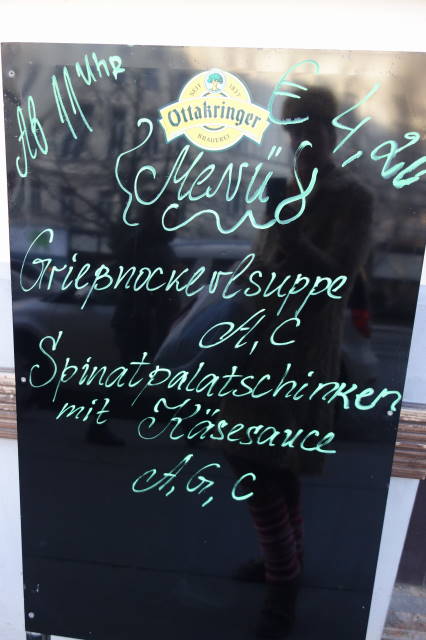 Ab 11 Uhr
SEIT 1837
Ottakringer
BRAUEREI
€ 4,20
Menü
Grießnockerlsuppe
A, C
Spinatpalatschinken
mit Käsesauce
A, G, C